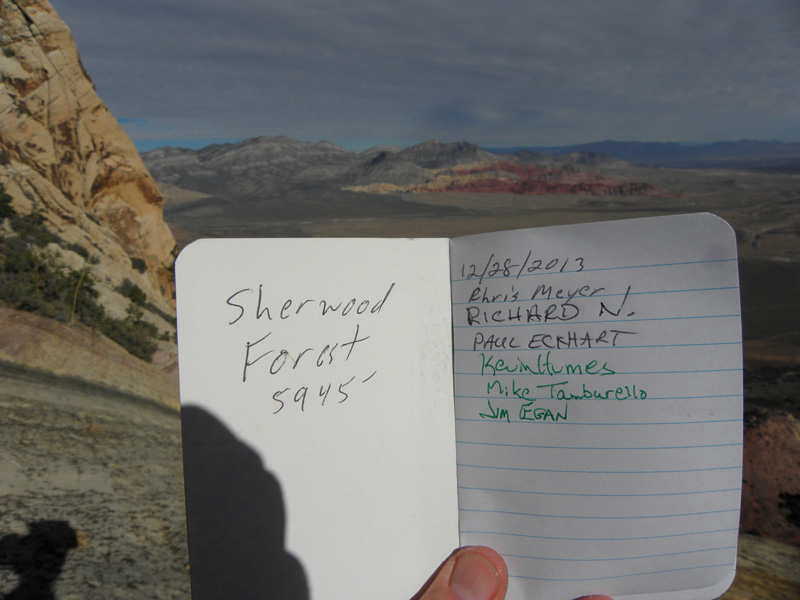 Sherwood
Forest
5945'
12/28/2013
Chris Meyer
RICHARD N.
PAUL ECKHART
Kevin Humes
Mike Tamburello
JIM EGAN